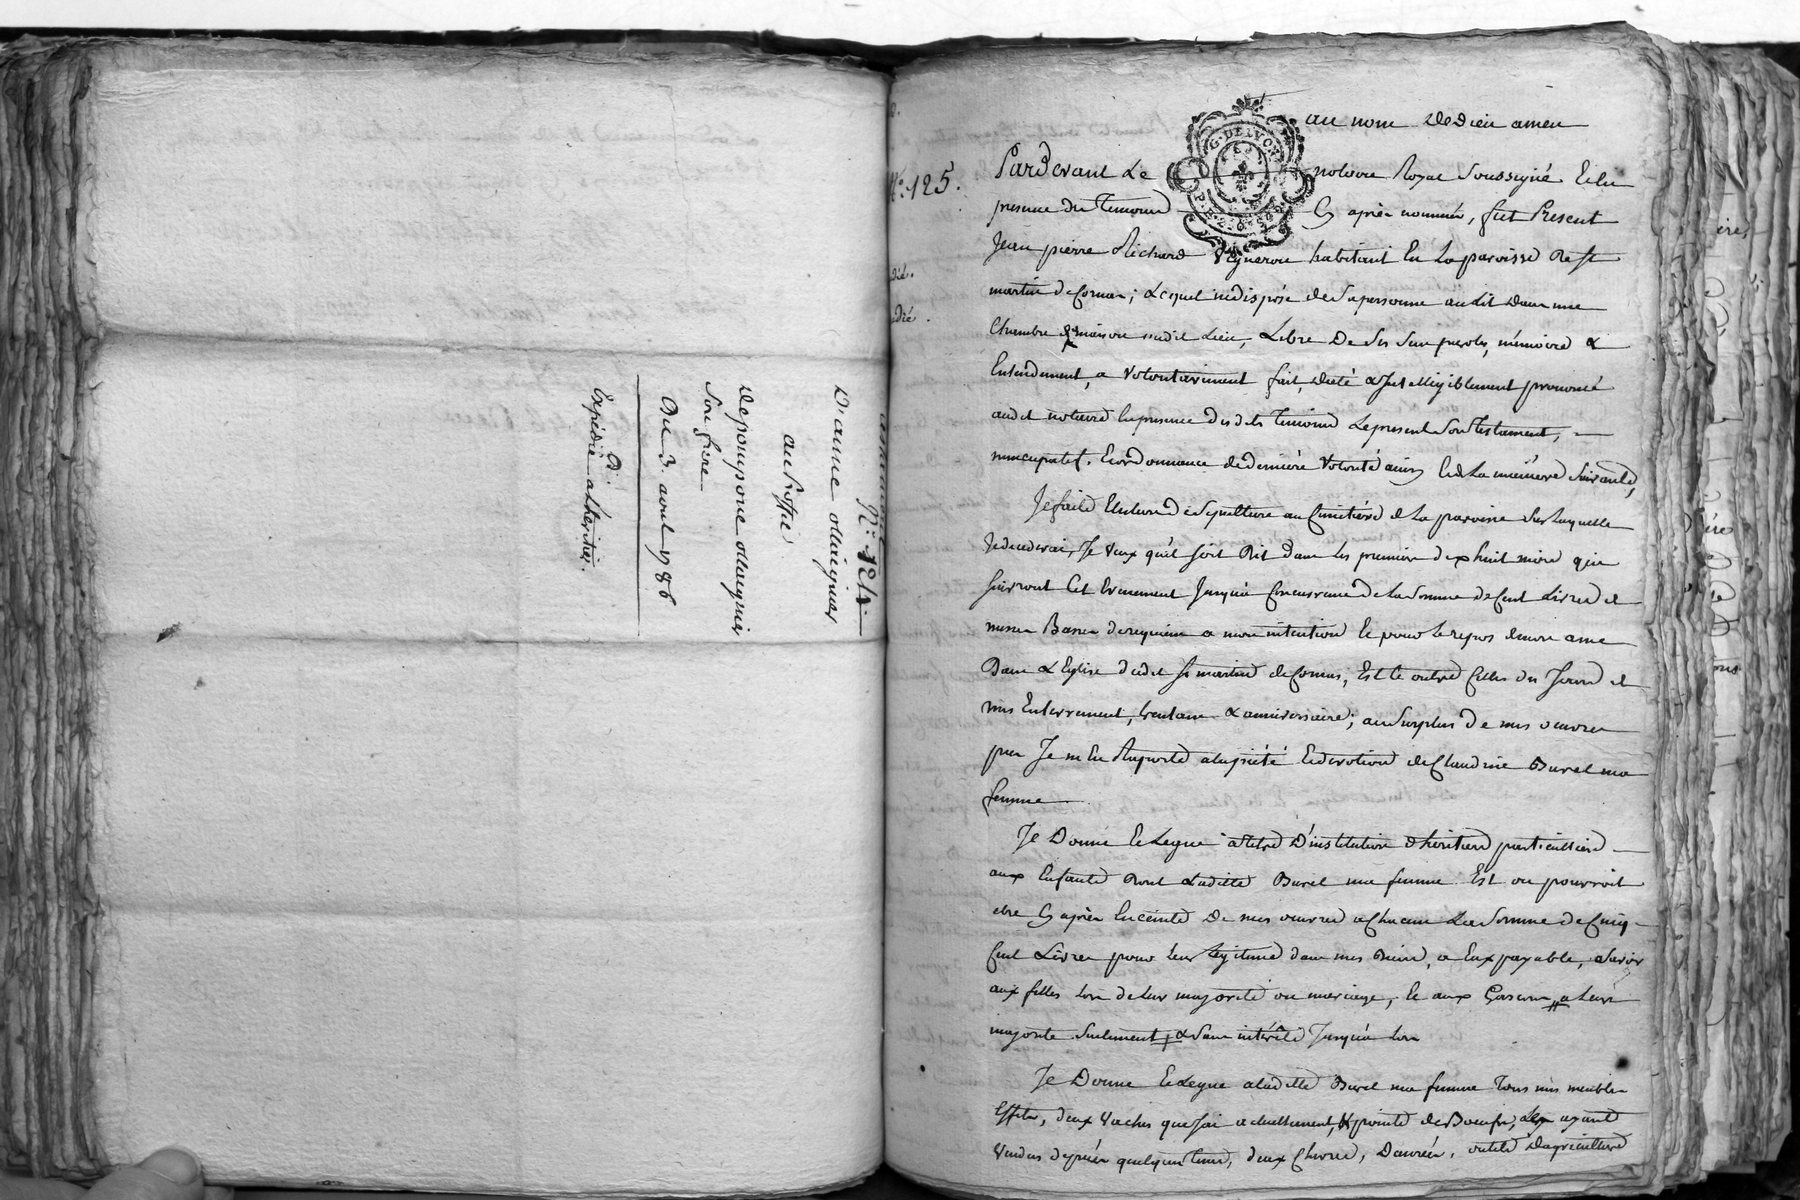 N.° 124.
D'anne Mai
au proffit
de ponçonne
son frère
Du 3 aout 1786
Expédié a lheritier.
N.° 125.
G. DE LYON
au nom de Dieu amen
Pardevant Le notaire Royal soussigné Et en
presence des Temoins Cy après nommés, fut Present
Jean pierre Richard vigneron habitant En La paroisse de St
martin de Cornas; Lequel indisposé de Sa personne au lit dans une
Chambre de maison audit Lieu, Libre De Ses Sens paroles, mémoire &
Entendement, a volontairement fait, dicté & Intelligiblement prononcé
audit notaire En presence desdits Temoins Le present Son Testament,
nuncupatif, Et ordonnance de dernière volonté ainsi Et de La manière Suivante,
Je faits Election de Sepulture au Cimetière de La paroisse Sur Laquelle
Je decederai, Je veux qu'il soit Dit dans les premiers dix huit mois qui
suivront Cet Evenement Jusqu'a Concurrence de La Somme de Cent Livres de
messes Basses de requiem a mon intention Et pour Le repos de mon ame
Dans L'Eglise dudit St martin de Cornas, Et ce outre Celles du Jour de
mes Enterrement, trentain & anniversaire; au Surplus de mes œuvres
pies Je m'En Raporte a la piété Et devotion de Claudine Burel ma
femme
Je Donne Et Legue a titre D'institution d'heritiers particuliers
aux Enfants Dont Ladite Burel ma femme Est ou pourroit
etre Cy après Enceinte De mes œuvres a Chacun La Somme de Cinq
Cent Livres pour leur Legitime dans mes Biens, a Eux payable, Savoir
aux filles lors de leur majorité ou mariage, Et aux Garçons a Leur
majorité Seulement, & Sans intérêts Jusqu'a lors
Je Donne Et Legue a ladite Burel ma femme Tous mes meubles
Effets, deux vaches que J'ai actuellement, point de Boeufs, Les ayant
vendus depuis quelque tems, deux Chevres, Denrées, outils D'agriculture